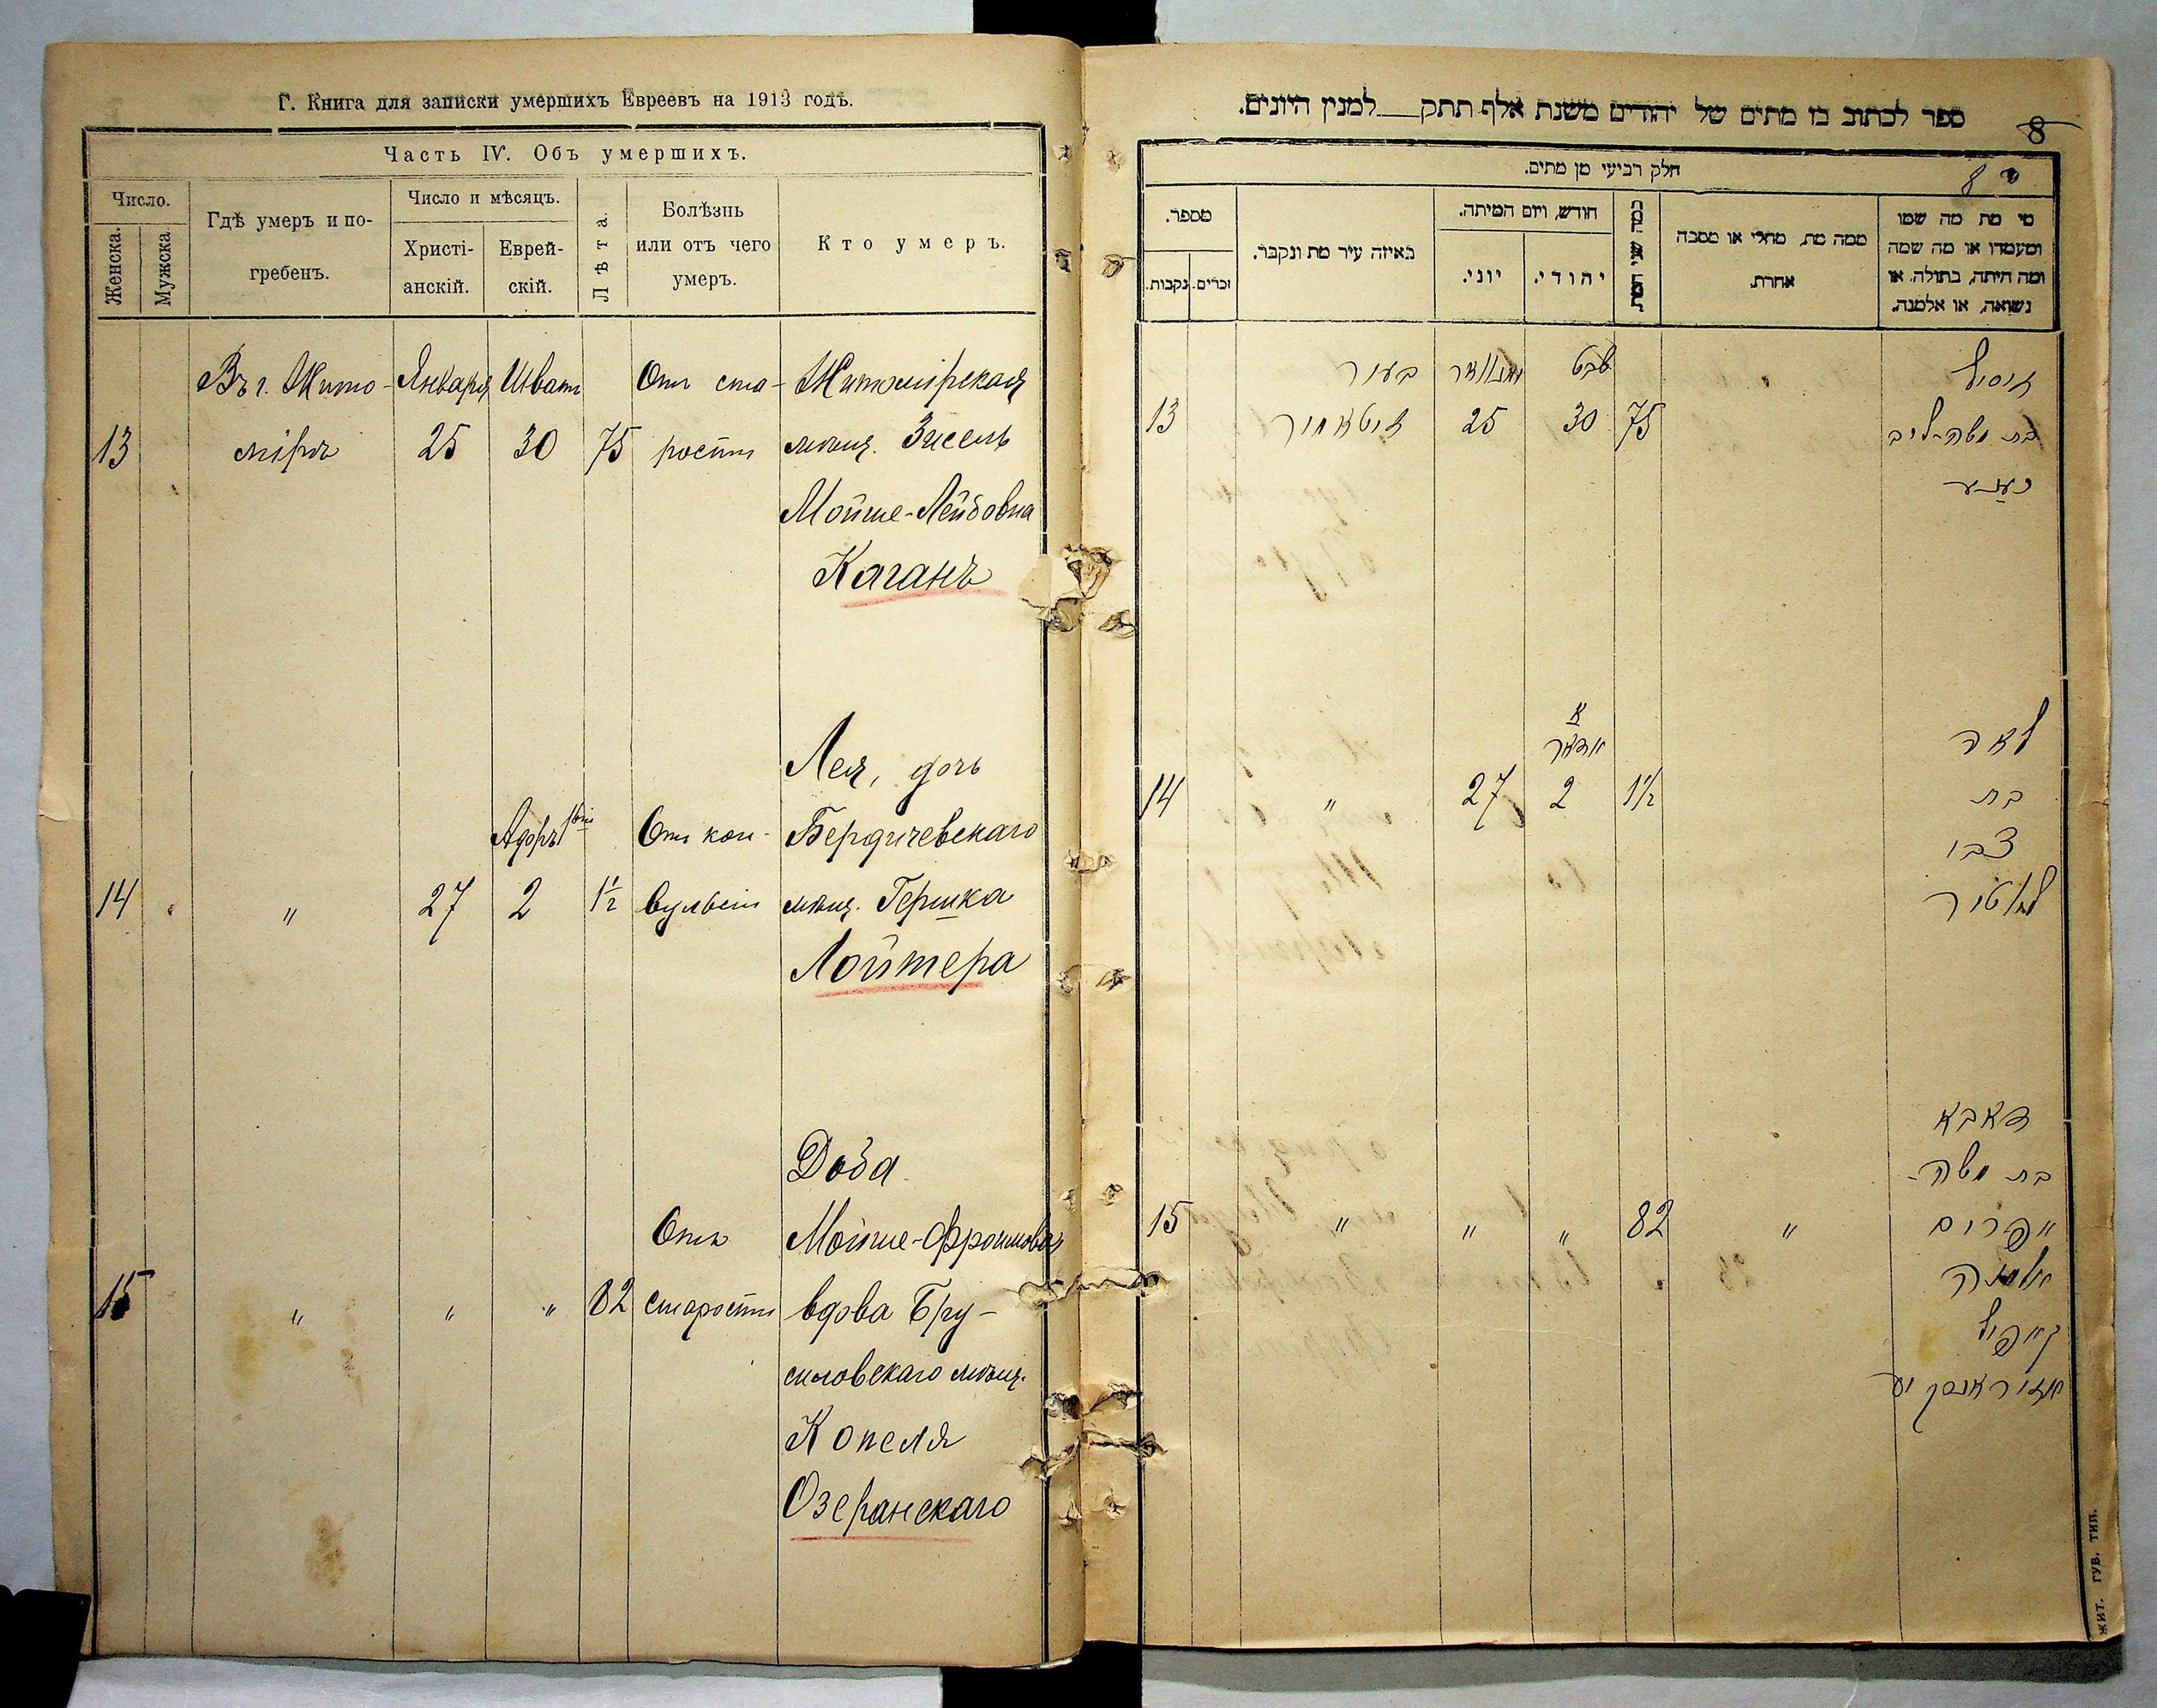 Г. Книга для записки умершихъ Евреевъ на 1913 годъ.
Часть IV. Объ умершихъ.
Число.
Женска.
Мужска.
Гдѣ умеръ и по-
гребенъ.
Число и мѣсяцъ.
Христі-
анскій.
Еврей-
скій.
Лѣта.
Болѣзнь
или отъ чего
умеръ.
Кто умеръ.
Въ г. Жито- Января Шватъ Отъ ста- Житомірская
13 мірѣ 25 30 75 рости мѣщ. Зисель
Мойше-Лейбовна
Каганъ
Лея, дочь
Адаръ 1й Отъ кон- Бердичевскаго
14 " 27 2 1½ вульсіи мѣщ. Гершка
Лойтера
Доба
Отъ Мойше-Фроимовна
15 " " " 82 старости вдова Бру-
силовскаго мѣщ.
Копеля
Озеранскаго
ספר לכתוב בו מתים של יהודים משנת אלף תתק למנין היונים.
8
חלק רביעי מן מתים.
8
מספר.
זכרים.
נקבות.
באיזה עיר מת ונקבר.
חודש, ויום המיתה.
יוני.
יהודי.
כמה שני המת
ממה מת, מחלי או מסבה
אחרת.
מי מת מה שמו
ומעמדו או מה שמה
ומה היתה, בתולה, או
נשואה, או אלמנה.
בעיר יאנואר שבט זיסיל
13 זיטאמיר 25 30 75 בת משה-ליב
א
אדאר לאה
14 " 27 2 1½ בת
צבי
לאטיר
דאבא
בת משה-
15 " " " 82 " אפרים
אלמנה
קאפיל
ЖИТ. ГУБ. ТИП.